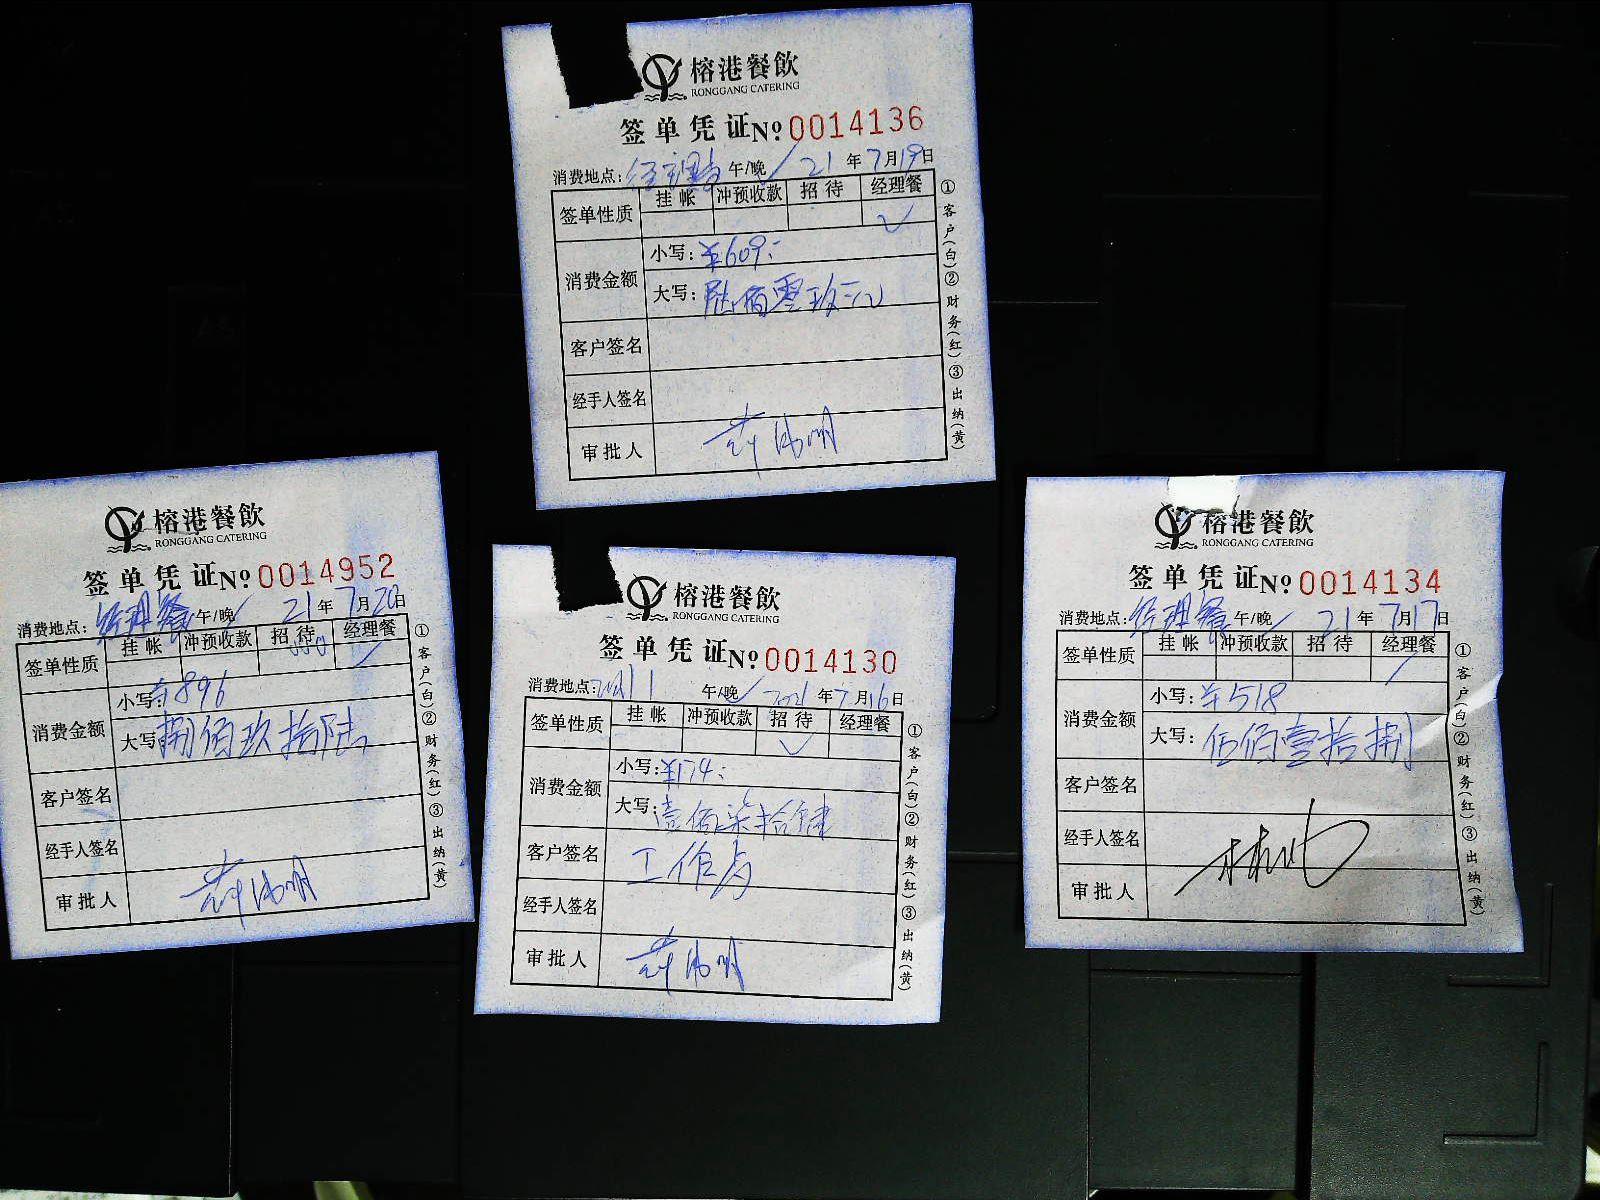 榕港餐飲
RONGGANG CATERING
签单凭证№0014136
消费地点: 午/晚✓ 21年7月19日
签单性质 挂帐 冲预收款 招待 经理餐
✓
消费金额 小写:¥609:
大写:陆佰零玖元
客户签名
经手人签名
审批人
①客户(白)②财务(红)③出纳(黄)
榕港餐飲
RONGGANG CATERING
签单凭证№0014952
消费地点:经理餐 午/晚✓ 21年7月20日
签单性质 挂帐 冲预收款 招待 经理餐
✓
消费金额 小写:¥896
大写:捌佰玖拾陆
客户签名
经手人签名
审批人
①客户(白)②财务(红)③出纳(黄)
榕港餐飲
RONGGANG CATERING
签单凭证№0014130
消费地点: 午/晚✓ 2021年7月16日
签单性质 挂帐 冲预收款 招待 经理餐
✓
消费金额 小写:¥174:
大写:壹佰柒拾肆
客户签名 工作
经手人签名
审批人
①客户(白)②财务(红)③出纳(黄)
榕港餐飲
RONGGANG CATERING
签单凭证№0014134
消费地点:经理餐 午/晚✓ 21年7月17日
签单性质 挂帐 冲预收款 招待 经理餐
✓
消费金额 小写:¥518
大写:伍佰壹拾捌
客户签名
经手人签名
审批人
①客户(白)②财务(红)③出纳(黄)